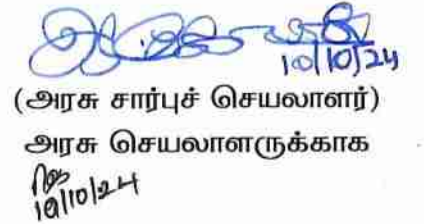 10/10/24
(அரசு சார்புச் செயலாளர்)
அரசு செயலாளருக்காக
10/10/24